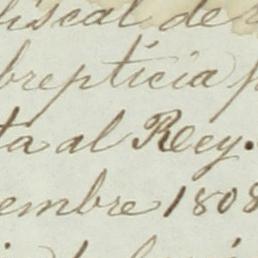 fiscal de
brepticia p
ta al Rey.
embre 1808